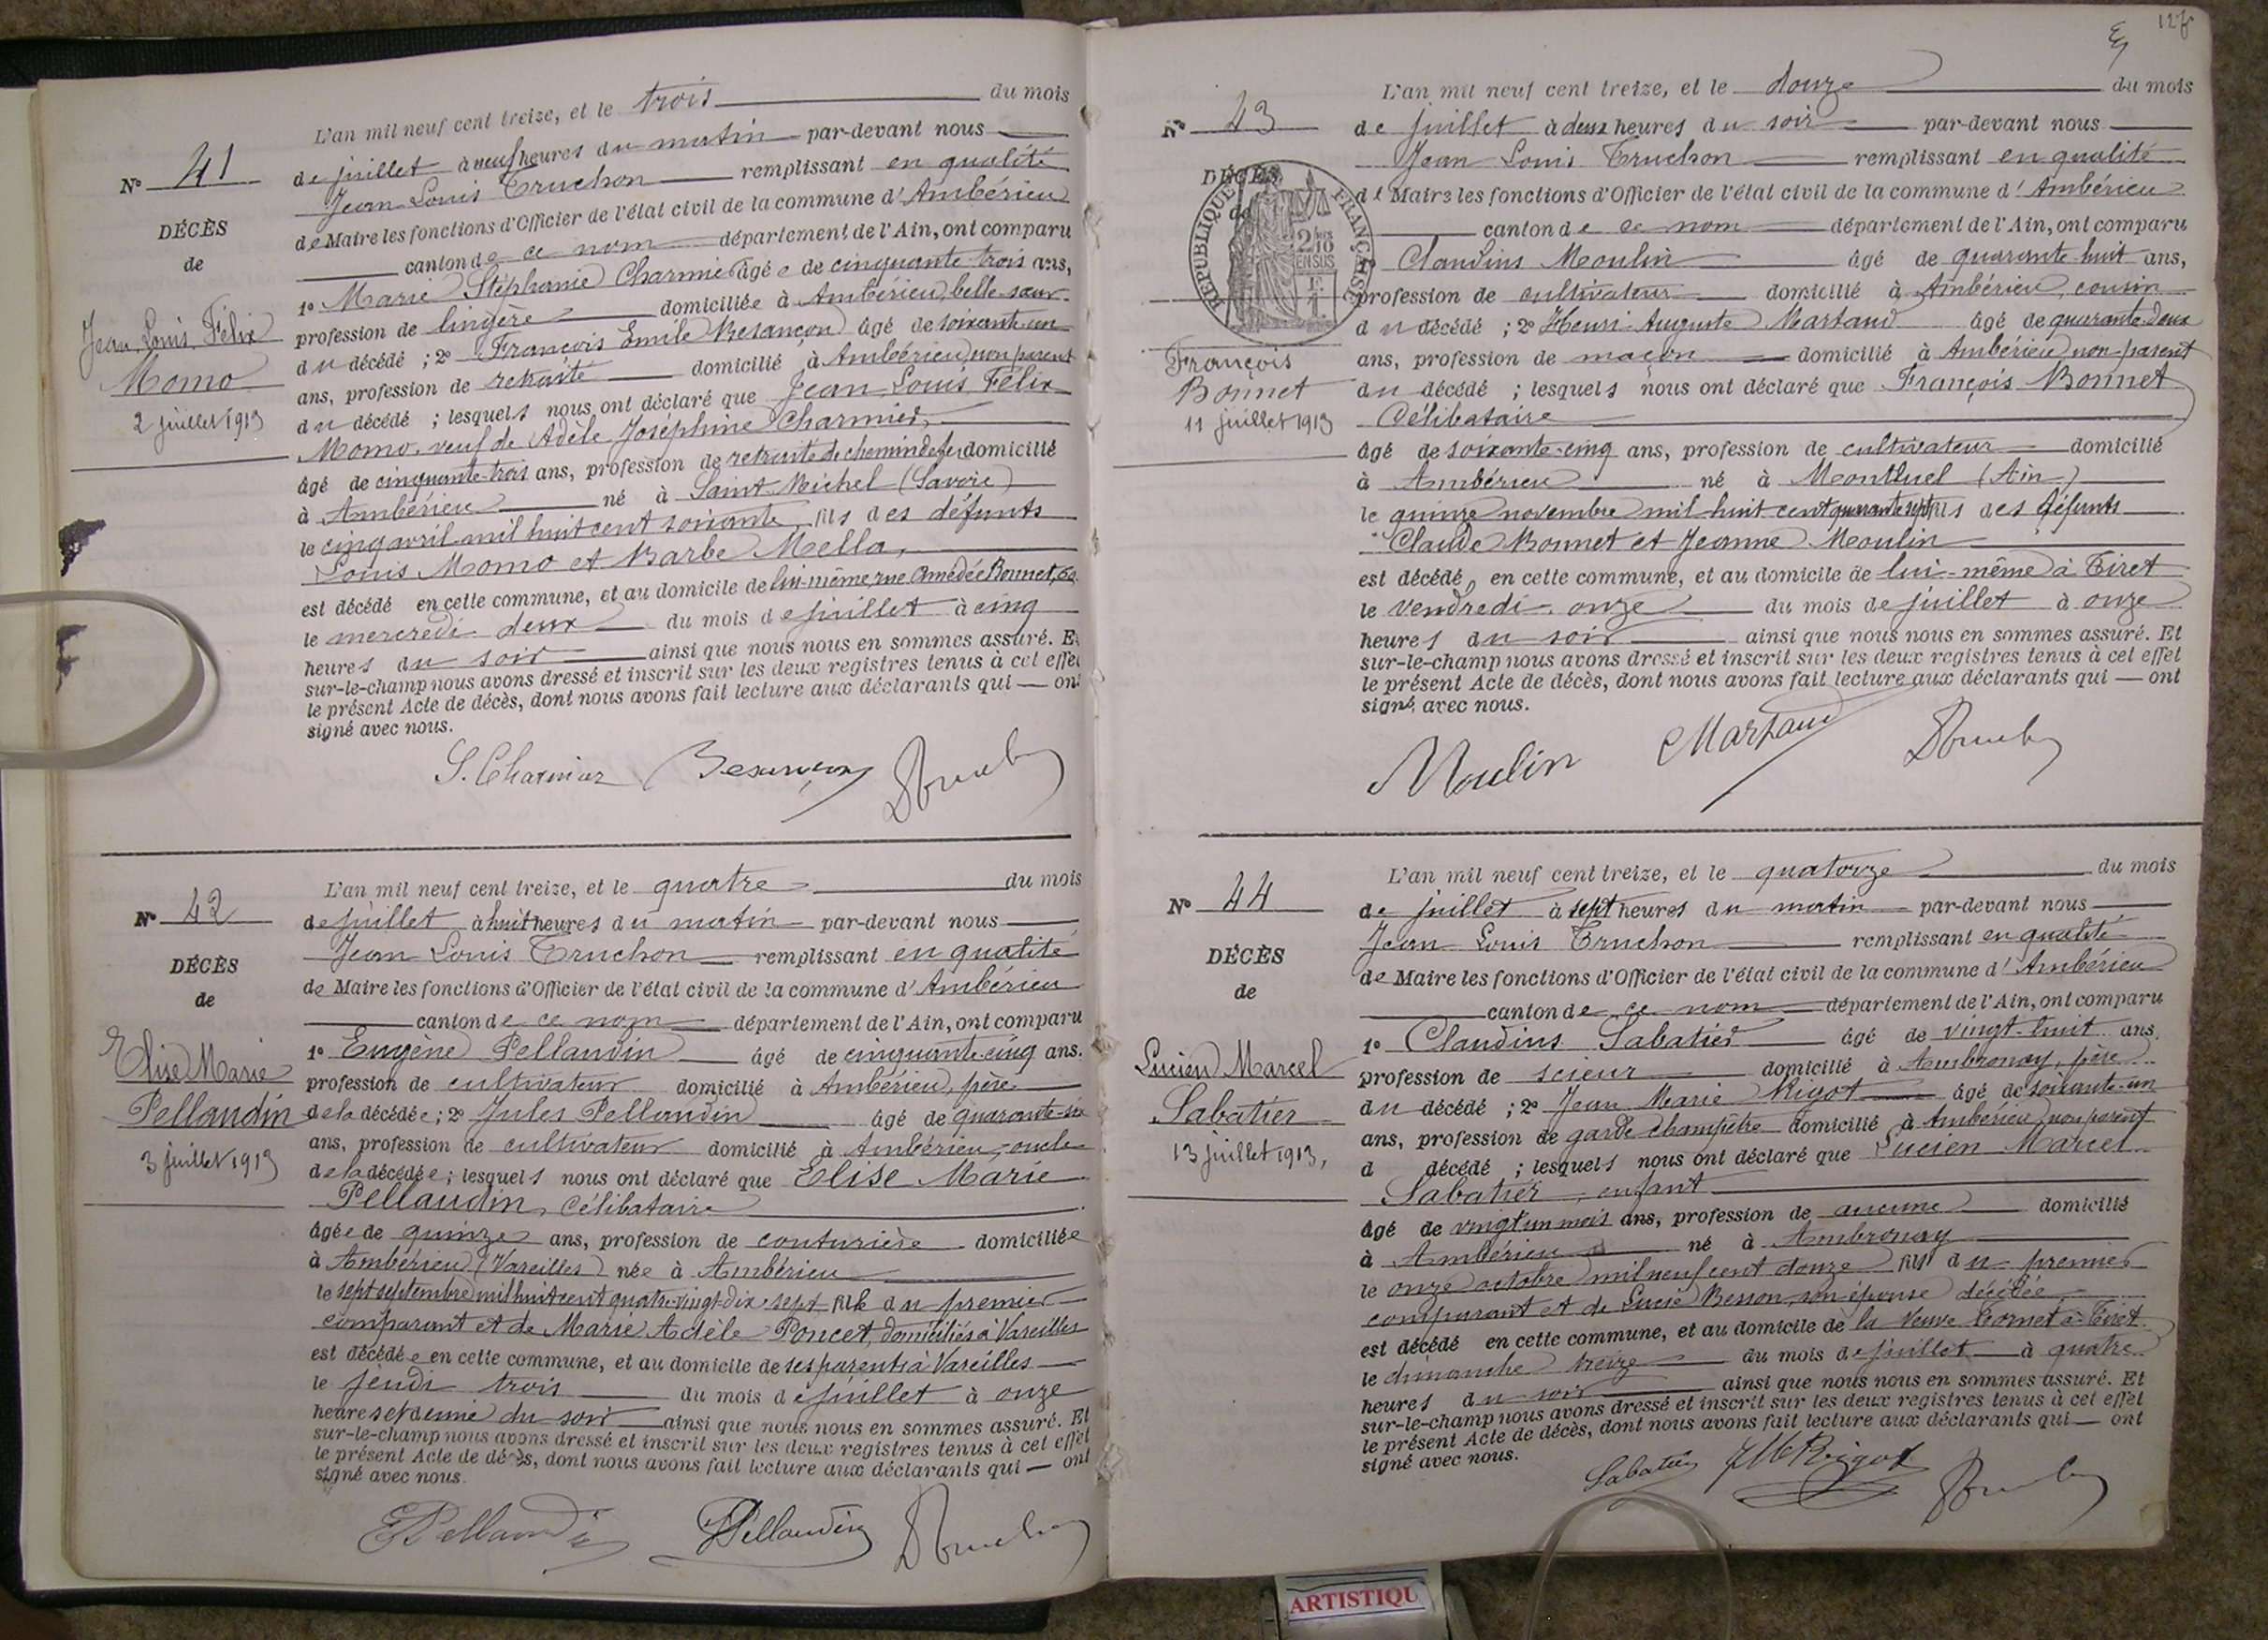 L'an mil neuf cent treize, et le trois du mois
de juillet à neuf heures du matin par-devant nous
Jean Louis Truchon remplissant en qualité
de Maire les fonctions d'Officier de l'état civil de la commune d'Ambérieu
canton de ce nom département de l'Ain, ont comparu
1º Marie Stéphanie Charmier âgée de cinquante-trois ans,
profession de lingère domiciliée à Ambérieu, belle-sœur
du décédé ; 2º François Emile Besançon âgé de soixante-un
ans, profession de retraité domicilié à Ambérieu, non parent
du décédé ; lesquels nous ont déclaré que Jean Louis Félix
Momo, veuf de Adèle Joséphine Charmier,
âgé de cinquante-trois ans, profession de retraité de chemin de fer domicilié
à Ambérieu né à Saint-Michel (Savoie)
le cinq avril mil huit cent soixante, fils des défunts
Louis Momo et Barbe Mella,
est décédé en cette commune, et au domicile de lui-même, rue Amédée Bonnet, 60
le mercredi deux du mois de juillet à cinq
heures du soir ainsi que nous nous en sommes assuré. Et
sur-le-champ nous avons dressé et inscrit sur les deux registres tenus à cet effet
le présent Acte de décès, dont nous avons fait lecture aux déclarants qui — ont
signé avec nous.
S. Charmier Besançon
Nº 41
DÉCÈS
de
Jean Louis Félix
Momo
2 juillet 1913
L'an mil neuf cent treize, et le quatre du mois
de juillet à huit heures du matin par-devant nous
Jean Louis Truchon remplissant en qualité
de Maire les fonctions d'Officier de l'état civil de la commune d'Ambérieu
canton de ce nom département de l'Ain, ont comparu
1º Eugène Pellaudin âgé de cinquante-cinq ans.
profession de cultivateur domicilié à Ambérieu, père
de la décédée ; 2º Jules Pellaudin âgé de quarante-six
ans, profession de cultivateur domicilié à Ambérieu, oncle
de la décédée ; lesquels nous ont déclaré que Elise Marie
Pellaudin, célibataire
âgée de quinze ans, profession de couturière domiciliée
à Ambérieu (Vareilles) née à Ambérieu
le sept septembre mil huit cent quatre-vingt-dix-sept fille du premier
comparant et de Marie Adèle Poncet, domiciliés à Vareilles
est décédée en cette commune, et au domicile de ses parents à Vareilles
le jeudi trois du mois de juillet à onze
heures et demie du soir ainsi que nous nous en sommes assuré. Et
sur-le-champ nous avons dressé et inscrit sur les deux registres tenus à cet effet
le présent Acte de décès, dont nous avons fait lecture aux déclarants qui — ont
signé avec nous.
E Pellaudin JPellaudin
Nº 42
DÉCÈS
de
Elise Marie
Pellaudin
3 juillet 1913
L'an mil neuf cent treize, et le douze du mois
de juillet à deux heures du soir par-devant nous
Jean Louis Truchon remplissant en qualité
de Maire les fonctions d'Officier de l'état civil de la commune d'Ambérieu
canton de ce nom département de l'Ain, ont comparu
Claudius Moulin âgé de quarante-huit ans,
profession de cultivateur domicilié à Ambérieu, cousin
du décédé ; 2º Henri Auguste Martaud âgé de quarante-deux
ans, profession de maçon domicilié à Ambérieu, non-parent
du décédé ; lesquels nous ont déclaré que François Bonnet
Célibataire
âgé de soixante-cinq ans, profession de cultivateur domicilié
à Ambérieu né à Montluel (Ain)
le quinze novembre mil huit cent quarante-sept fils des défunts
Claude Bonnet et Jeanne Moulin
est décédé en cette commune, et au domicile de lui-même à Tiret
le vendredi onze du mois de juillet à onze
heures du soir ainsi que nous nous en sommes assuré. Et
sur-le-champ nous avons dressé et inscrit sur les deux registres tenus à cet effet
le présent Acte de décès, dont nous avons fait lecture aux déclarants qui — ont
signé avec nous.
Moulin Martaud
Nº 43
DÉCÈS
de
RÉPUBLIQUE FRANÇAISE
François
Bonnet
11 juillet 1913
L'an mil neuf cent treize, et le quatorze du mois
de juillet à sept heures du matin par-devant nous
Jean Louis Truchon remplissant en qualité
de Maire les fonctions d'Officier de l'état civil de la commune d'Ambérieu
canton de ce nom département de l'Ain, ont comparu
1º Claudius Sabatier âgé de vingt-huit ans
profession de scieur domicilié à Ambronay, père
du décédé ; 2º Jean Marie Rigot âgé de soixante-un
ans, profession de garde champêtre domicilié à Ambérieu, non parent
d décédé ; lesquels nous ont déclaré que Lucien Marcel
Sabatier, enfant
âgé de vingt un mois ans, profession de aucune domicilié
à Ambérieu né à Ambronay
le onze octobre mil neuf cent douze fils du premier
comparant et de Lucie Besson, son épouse décédée,
est décédé en cette commune, et au domicile de la Veuve Cornet à Tiret
le dimanche treize du mois de juillet à quatre
heures du soir ainsi que nous nous en sommes assuré. Et
sur-le-champ nous avons dressé et inscrit sur les deux registres tenus à cet effet
le présent Acte de décès, dont nous avons fait lecture aux déclarants qui — ont
signé avec nous.
Sabatier JMRigot
Nº 44
DÉCÈS
de
Lucien Marcel
Sabatier
13 juillet 1913,
ARTISTIQU